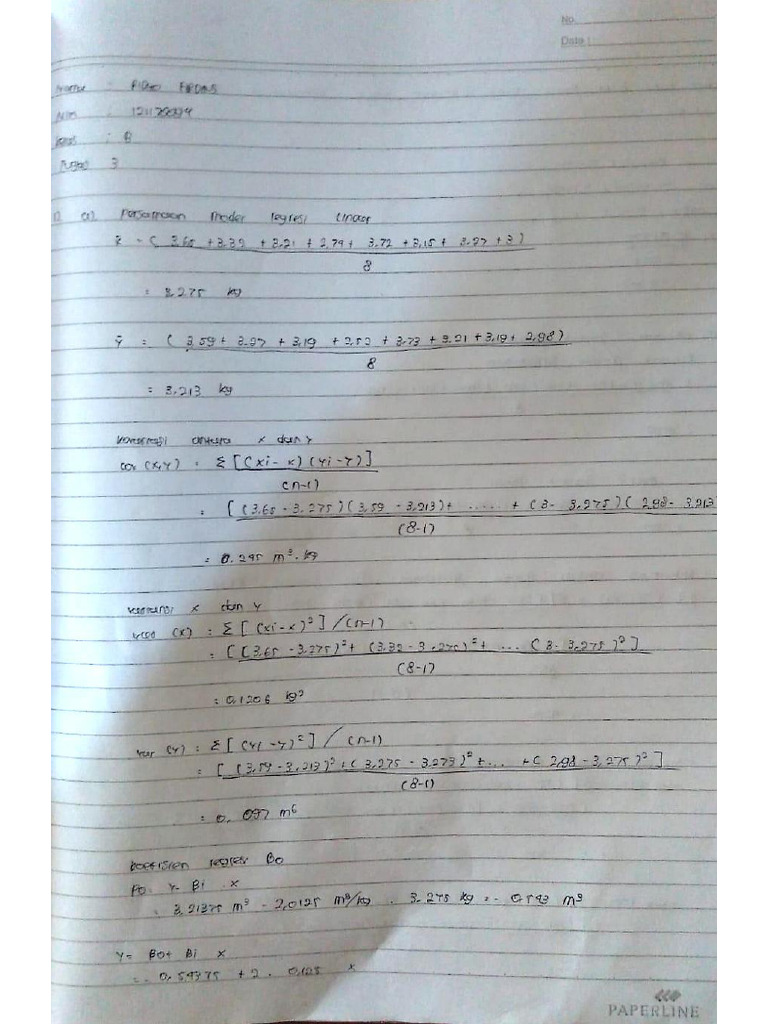 No.
Date :
Nama :
Nim : 121179094
Kelas : B
Tugas 3
a) Persamaan model regresi linear
x̄ = ( 3,65 + 3,32 + 3,21 + 2,79 + 3,72 + 3,15 + 3,27 + 3 )
8
= 3,275 kg
ȳ = ( 3,59 + 3,27 + 3,19 + 2,52 + 3,73 + 3,21 + 3,19 + 2,98 )
8
= 3,213 kg
antara x dan y
cov (x,y) = Σ [ (xi - x) (yi - y) ]
(n-1)
= [ (3,65 - 3,275) (3,59 - 3,213) + ..... + (3 - 3,275) ( 2,98 - 3,213
(8-1)
= 0.245 m³. kg
x dan y
(x) = Σ [ (xi - x)² ] / (n-1)
= [ (3,65 - 3,275)² + (3,32 - 3,275)² + ... (3 - 3,275)² ]
(8-1)
= 0,1206 kg²
var (y) = Σ [ (yi - y)² ] / (n-1)
= [ (3,59 - 3,213)² + ( 3,275 - 3,273)² + ... + ( 2,98 - 3,275)² ]
(8-1)
= 0, 097 m⁶
koefisien regresi Bo
Bo: Y - Bi . x
= 3,21375 m³ - 2,0125 m³/kg . 3,275 kg = - 0,543 m³
Y = Bo + Bi x
= - 0,54375 + 2 . 0,125 x
PAPERLINE